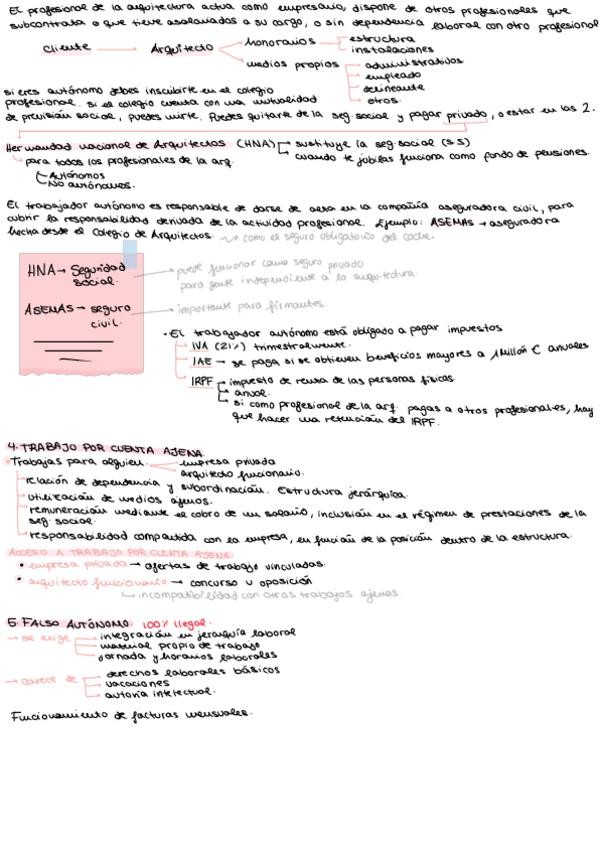 El profesional de la arquitectura actúa como empresario, dispone de otros profesionales que
subcontrata o que tiene asalariados a su cargo, o sin dependencia laboral con otro profesional
cliente Arquitecto honorarios estructura
instalaciones
medios propios administrativos
empleado
delineante
otros.
si eres autónomo debes inscribirte en el colegio
profesional. si el colegio cuenta con una mutualidad
de previsión social, puedes unirte. Puedes quitarte de la seg. social y pagar privado, o estar en las 2.
Hermandad nacional de Arquitectos (HNA) sustituye la seg. social (SS)
para todos los profesionales de la arq. cuando te jubilas funciona como fondo de pensiones.
Autónomos
No autónomos.
El trabajador autónomo es responsable de darse de alta en la compañía aseguradora civil, para
cubrir la responsabilidad derivada de la actividad profesional. Ejemplo: ASEMAS → aseguradora
hecha desde el Colegio de Arquitectos. como el seguro obligatorio del coche.
HNA → Seguridad social. puede funcionar como seguro privado
para gente independiente a la arquitectura.
ASEMAS → seguro civil. importante para firmantes.
• El trabajador autónomo está obligado a pagar impuestos
IVA (21%) trimestralmente.
IAE → se paga si se obtienen beneficios mayores a 1 Millón € anuales
IRPF impuesto de renta de las personas físicas
anual.
si como profesional de la arq. pagas a otros profesionales, hay
que hacer una retención del IRPF.
4. TRABAJO POR CUENTA AJENA.
Trabajas para alguien. empresa privada
arquitecto funcionario.
relación de dependencia y subordinación. Estructura jerárquica.
utilización de medios ajenos.
remuneración mediante el cobro de un salario, inclusión en el régimen de prestaciones de la
seg. social.
responsabilidad compartida con la empresa, en función de la posición dentro de la estructura.
ACCESO A TRABAJO POR CUENTA AJENA
• empresa privada → ofertas de trabajo vinculadas.
• arquitecto funcionario → concurso u oposición
incompatibilidad con otros trabajos ajenos.
5. FALSO AUTÓNOMO. 100% Ilegal.
→ se exige integración en jerarquía laboral
material propio de trabajo
jornada y horarios laborales
→ carece de derechos laborales básicos
vacaciones
autoría intelectual.
Funcionamiento de facturas mensuales.